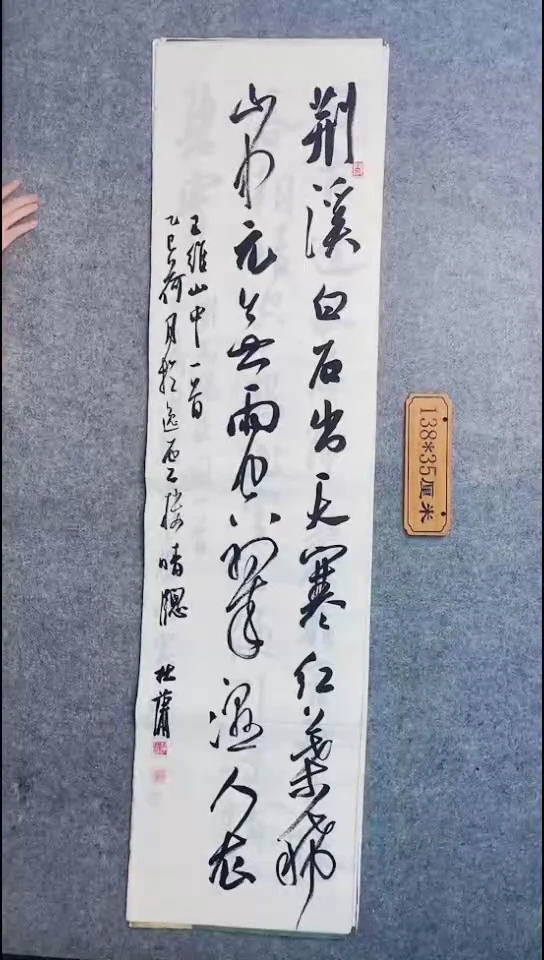 荆溪白石出天寒红葉稀
山中元無雨空翠湿人衣
王维山中一首
乙巳荷月於逸楼晴牕 杜萧
138*35厘米